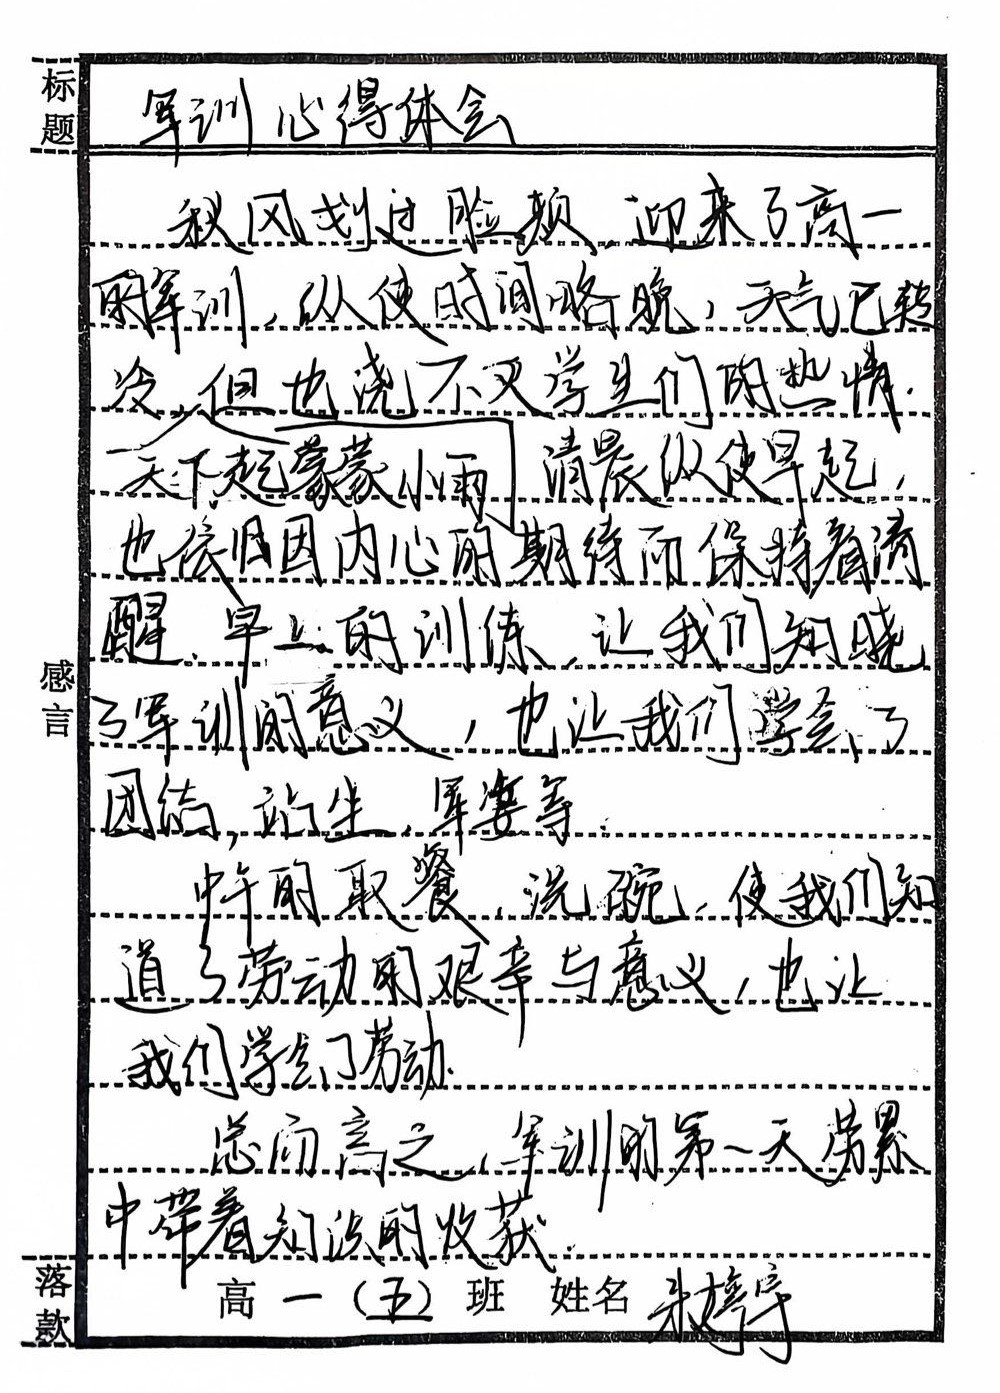 标题
军训心得体会
秋风划过脸颊，迎来了高一
的军训，纵使时间略晚，天气已转
冷，但也浇不灭学生们的热情.
天下起蒙蒙小雨 清晨纵使早起，
也依旧因内心的期待而保持着清
醒.早上的训练，让我们知晓
了军训的意义，也让我们学会了
团结，站坐、军姿等.
感言
中午的取餐、洗碗，使我们知
道了劳动的艰辛与意义，也让
我们学会了劳动.
总而言之，军训的第一天劳累
中带着知识的收获.
落款
高一（五）班 姓名 朱